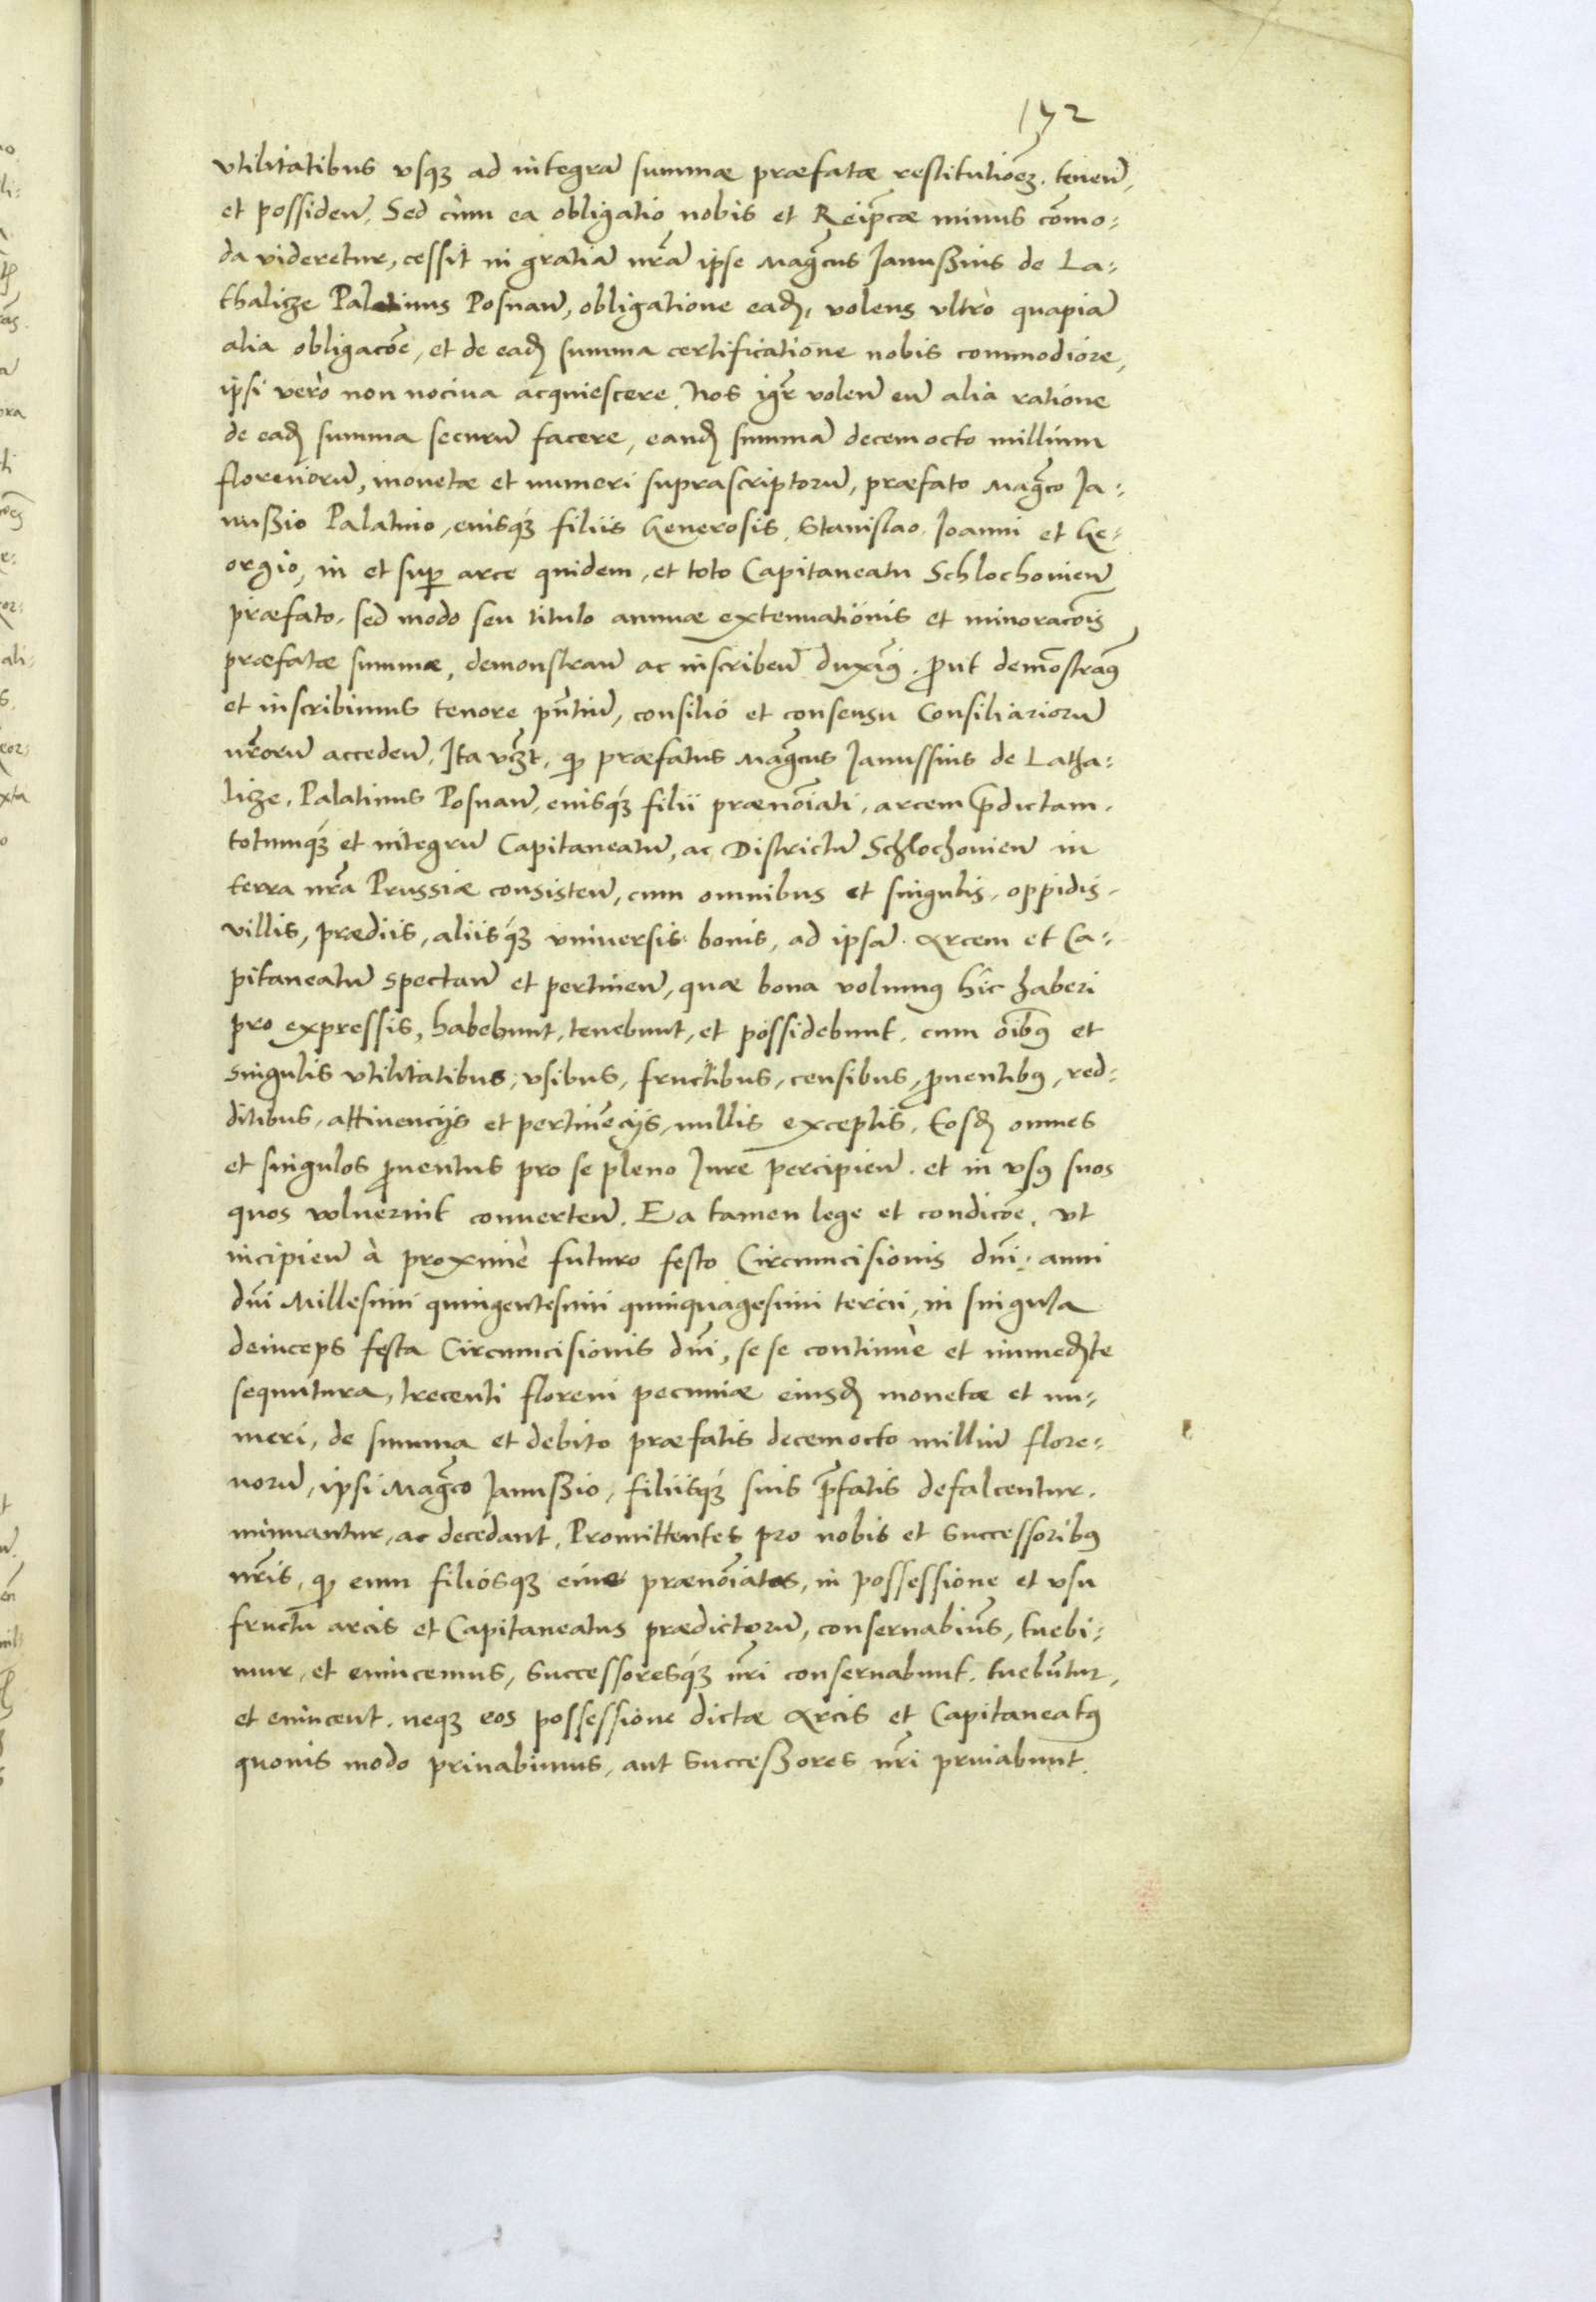 172
vtilitatibus vsq₃ ad integrā summæ præfatæ restitutiōe₃. teneñ,
et possideñ. Sed cùm ea obligatio nobis et Reip̄cæ minus cōmo-
da videretur, cessit in gratiā nr̄ā ipse Mag̃cus Janussius de La-
thalicze Palatinus Posnañ, obligatione eadꝫ, volens vltrò quapiā
alia obligacōe, et de eadꝫ summa certificatione nobis commodiore,
ipsi verò non nociua acquiescere. Nos igr̄ voleñ eū alia ratione
de eadꝫ summa securū facere, eandꝫ summā decemocto millium
florenorū, monetæ et numeri suprascriptorū, præfato Mag̃co Ja-
nussio Palatino, eiusq́₃ filiis Generosis, Stanislao, Joanni et Ge-
orgio, in et suꝑ arce quidem, et toto Capitaneatu Schlochovieñ
præfato, sed modo seu titulo annuæ extenuationis et minoracōis
præfatæ summæ, demonstrañ ac inscribeñ duxim⁹. ꝓut demōstram⁹
et inscribimus tenore pn̄tiū, consilio et consensu Consiliariorū
nr̄orū accedeñ. Ita vc₃t, qꝫ præfatus Mag̃cus Janussius de Latha-
licze, Palatinus Posnañ, eiusq́₃ filii prænōiati, arcem p̄dictam,
totumq́₃ et integrū Capitaneatū, ac Districtū Schlochovieñ in
terra nr̄a Prussiæ consisteñ, cum omnibus et singulis, oppidis,
villis, prædiis, aliisq́₃ vniuersis bonis, ad ipsā Arcem et Ca-
pitaneatū spectañ et pertineñ, quæ bona volumus hîc haberi
pro expressis, habebunt, tenebunt, et possidebunt, cum oībus et
singulis vtilitatibus, vsibus, fructibus, censibus, ꝓuentib⁹, red-
ditibus, attinencijs et pertinēcijs, nullis exceptis, Eosdꝫ omnes
et singulos ꝓuentus pro se pleno Jure percipieñ. et in vsus suos
quos voluerint conuerteñ. Ea tamen lege et condicōe, vt
incipieñ à proximè futuro festo Circumcisionis dn̄i, anni
dn̄i Millesimi quingentesimi quinquagesimi tercii, in singula
deinceps festa Circumcisionis dn̄i, se se continuè et immedꝫte
sequutura, trecenti floreni pecuniæ eiusdꝫ monetæ et nu-
meri, de summa et debito præfatis decemocto milliū flore-
norū, ipsi Mag̃co Janussio, filiisq́₃ suis p̄fatis defalcentur,
minuantur, ac decedant. Promittentes pro nobis et Successorib⁹
nr̄is, qꝫ eum filiosq₃ eius prænōiatos, in possessione et vsu
fructu arcis et Capitaneatus prædictorū, conseruabim̄s, tuebi-
mur, et euincemus, Successoresq́₃ nr̄i conseruabunt, tuebūtur,
et euincent, neq₃ eos possessione dictæ Arcis et Capitaneat⁹
quouis modo priuabimus, aut Successores nr̄i priuabunt.